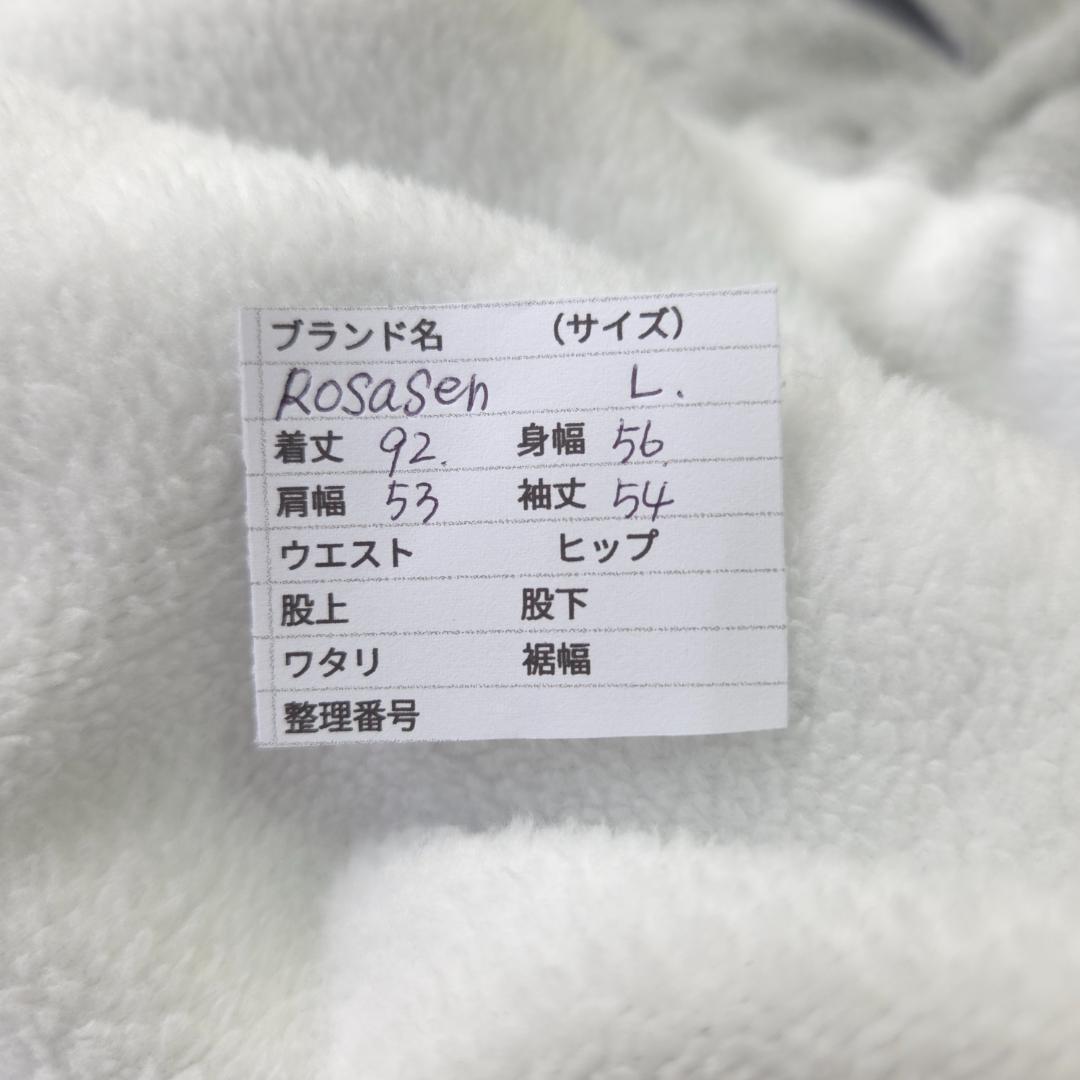 ブランド名 (サイズ)
Rosasen L.
着丈 92. 身幅 56.
肩幅 53 袖丈 54
ウエスト ヒップ
股上 股下
ワタリ 裾幅
整理番号